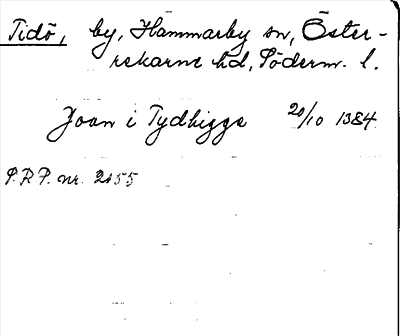 Tidö, by, Hammarby sn, Öster-
rekarne hd, Söderm. l.
Joan i Tydhigge 20/10 1384
S.R.P. nr. 2155